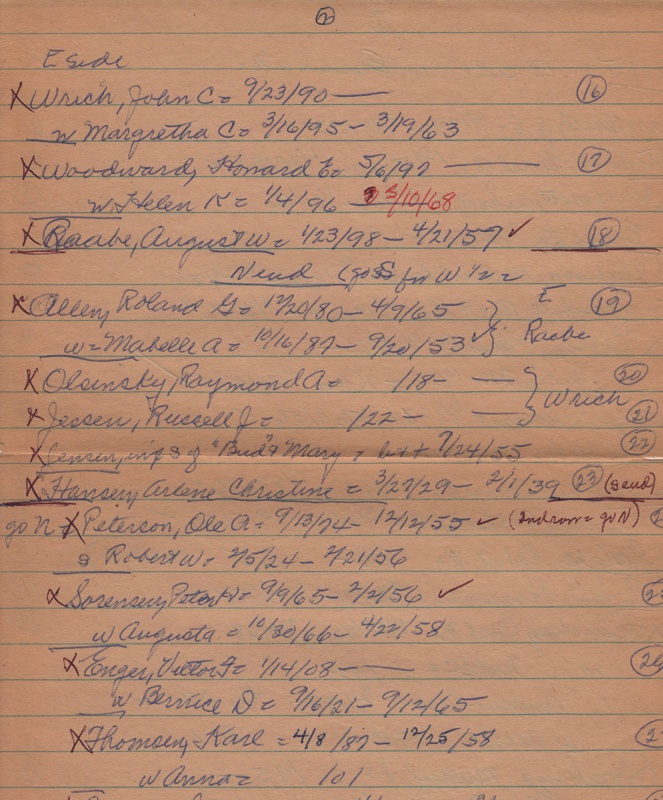 2
E side
X Wrich, John C = 9/23/90 — 16
w Margretha C = 3/16/95 – 3/19/63
X Woodward, Howard E = 5/6/92 — 17
w. Helen K = 1/4/96 5/10/68
X Raabe, August W = 1/23/98 – 4/21/57 ✓ 18
N end (go S for W 1/2 =
X Allen, Roland G = 12/20/80 – 4/9/65 } E 19
w = Mabelle A = 10/16/87 – 9/20/53 ✓ } Raabe
X Olsinsky, Raymond A = /18 – — } Wrich 20
X Jessen, Russell J = /22 – — } 21
X Jensen, inf s of "Bud" & Mary = b + 7/24/55 22
X Hansen, Arlene Christine = 3/27/29 – 2/1/39 23 (S end)
go N X Peterson, Ole A = 9/13/74 – 12/12/55 ✓ (2nd row = go N)
s Robert W = 2/5/24 – 2/21/56
X Sorensen, Peter = 9/9/65 – 2/2/56 ✓
w Augusta = 10/30/66 – 4/22/58
X Enger, Victor F = 1/14/08 – —
w Bernice D = 9/16/21 – 9/12/65
X Thomsen, Karl = 4/8/87 – 12/25/58
w Anna = /01